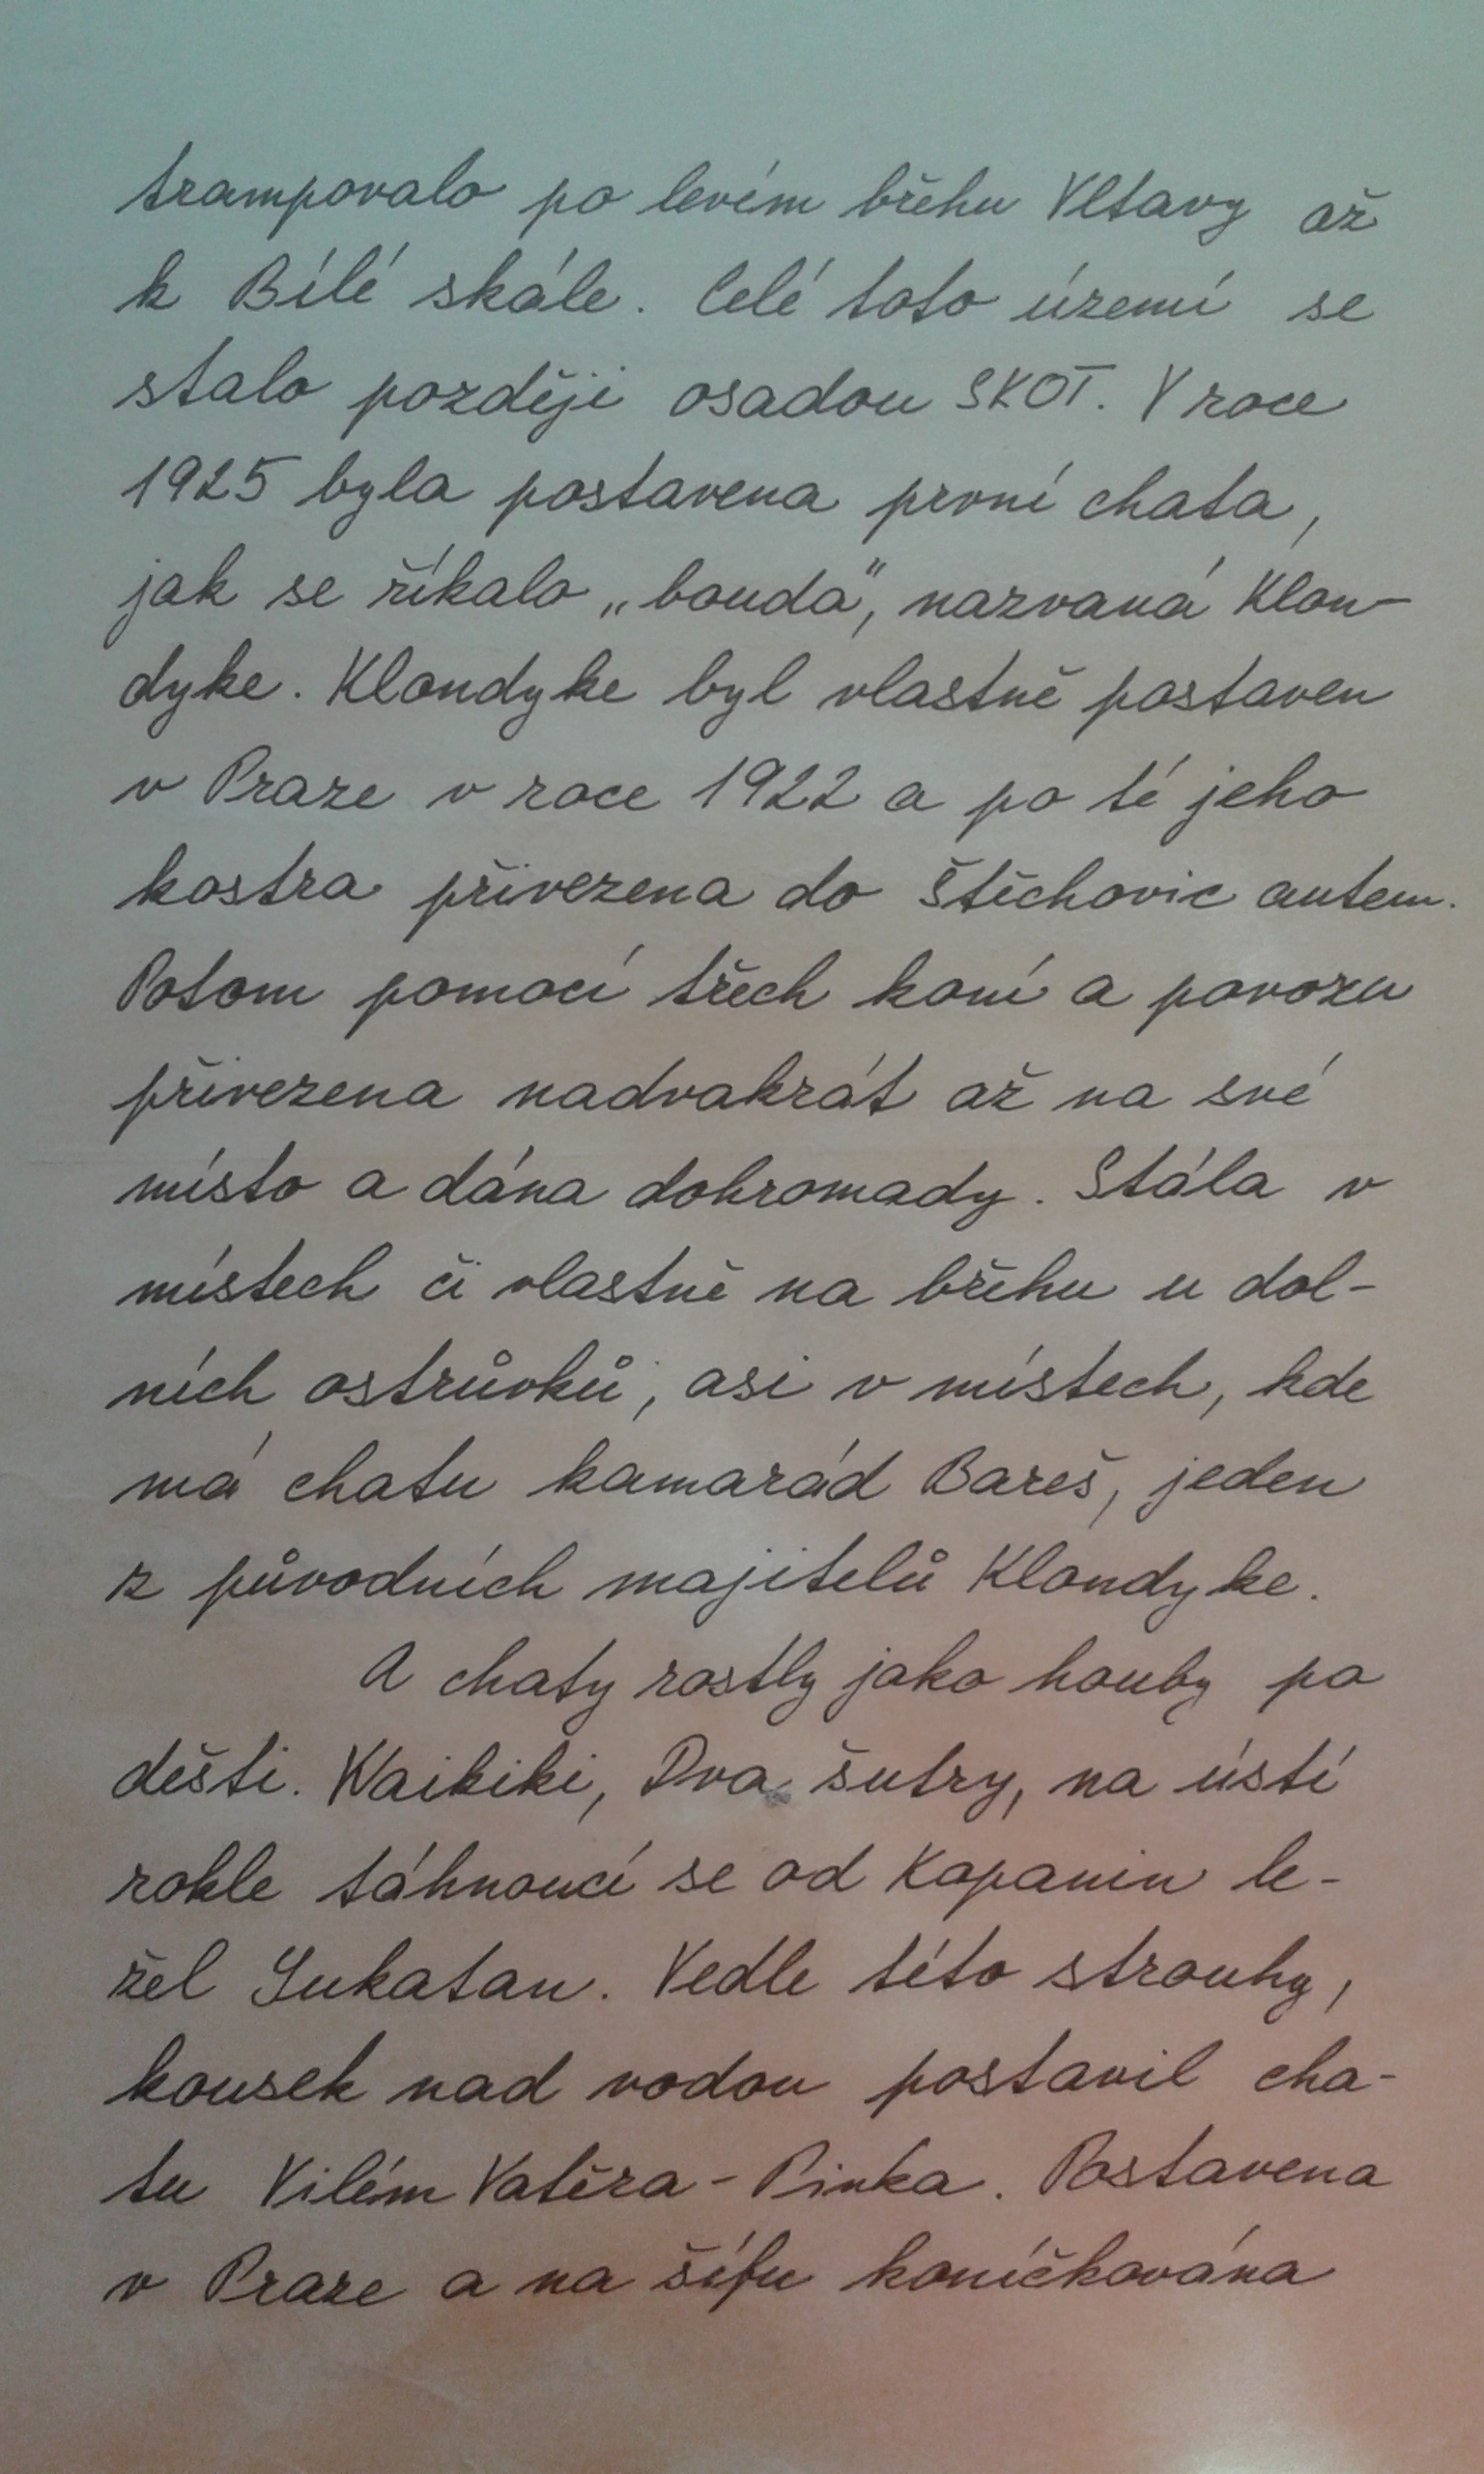 trampovalo po levém břehu Vltavy až
k Bílé skále. Celé toto území se
stalo později osadou SKOT. V roce
1925 byla postavena první chata,
jak se říkalo „bouda", nazvaná Klon-
dyke. Klondyke byl vlastně postaven
v Praze v roce 1922 a po té jeho
kostra přivezena do Štěchovic autem.
Potom pomocí třech koní a povozu
přivezena nadvakrát až na své
místo a dána dohromady. Stála v
místech či vlastně na břehu u dol-
ních ostrůvků, asi v místech, kde
má chatu kamarád Bareš, jeden
z původních majitelů Klondyke.
A chaty rostly jako houby po
dešti. Waikiki, Dva šutry, na ústí
rokle táhnoucí se od Kopanin le-
žel Yukatan. Vedle této strouhy,
kousek nad vodou postavil cha-
tu Vilém Vatěra - Pinka. Postavena
v Praze a na šífu koníčkována